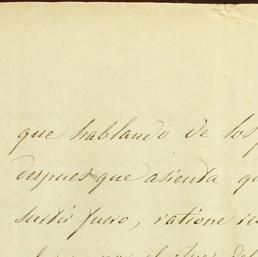 que hablando de los
despues que asienta q
surtir fuero, ratione re